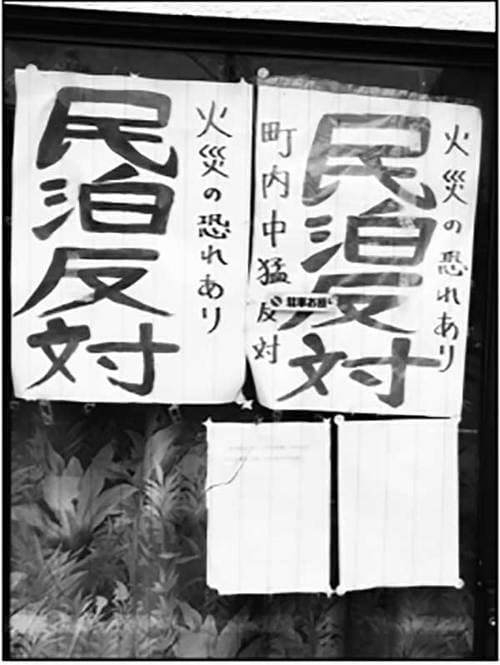 火災の恐れあり
民泊反対
町内中猛反対
火災の恐れあり
民泊反対